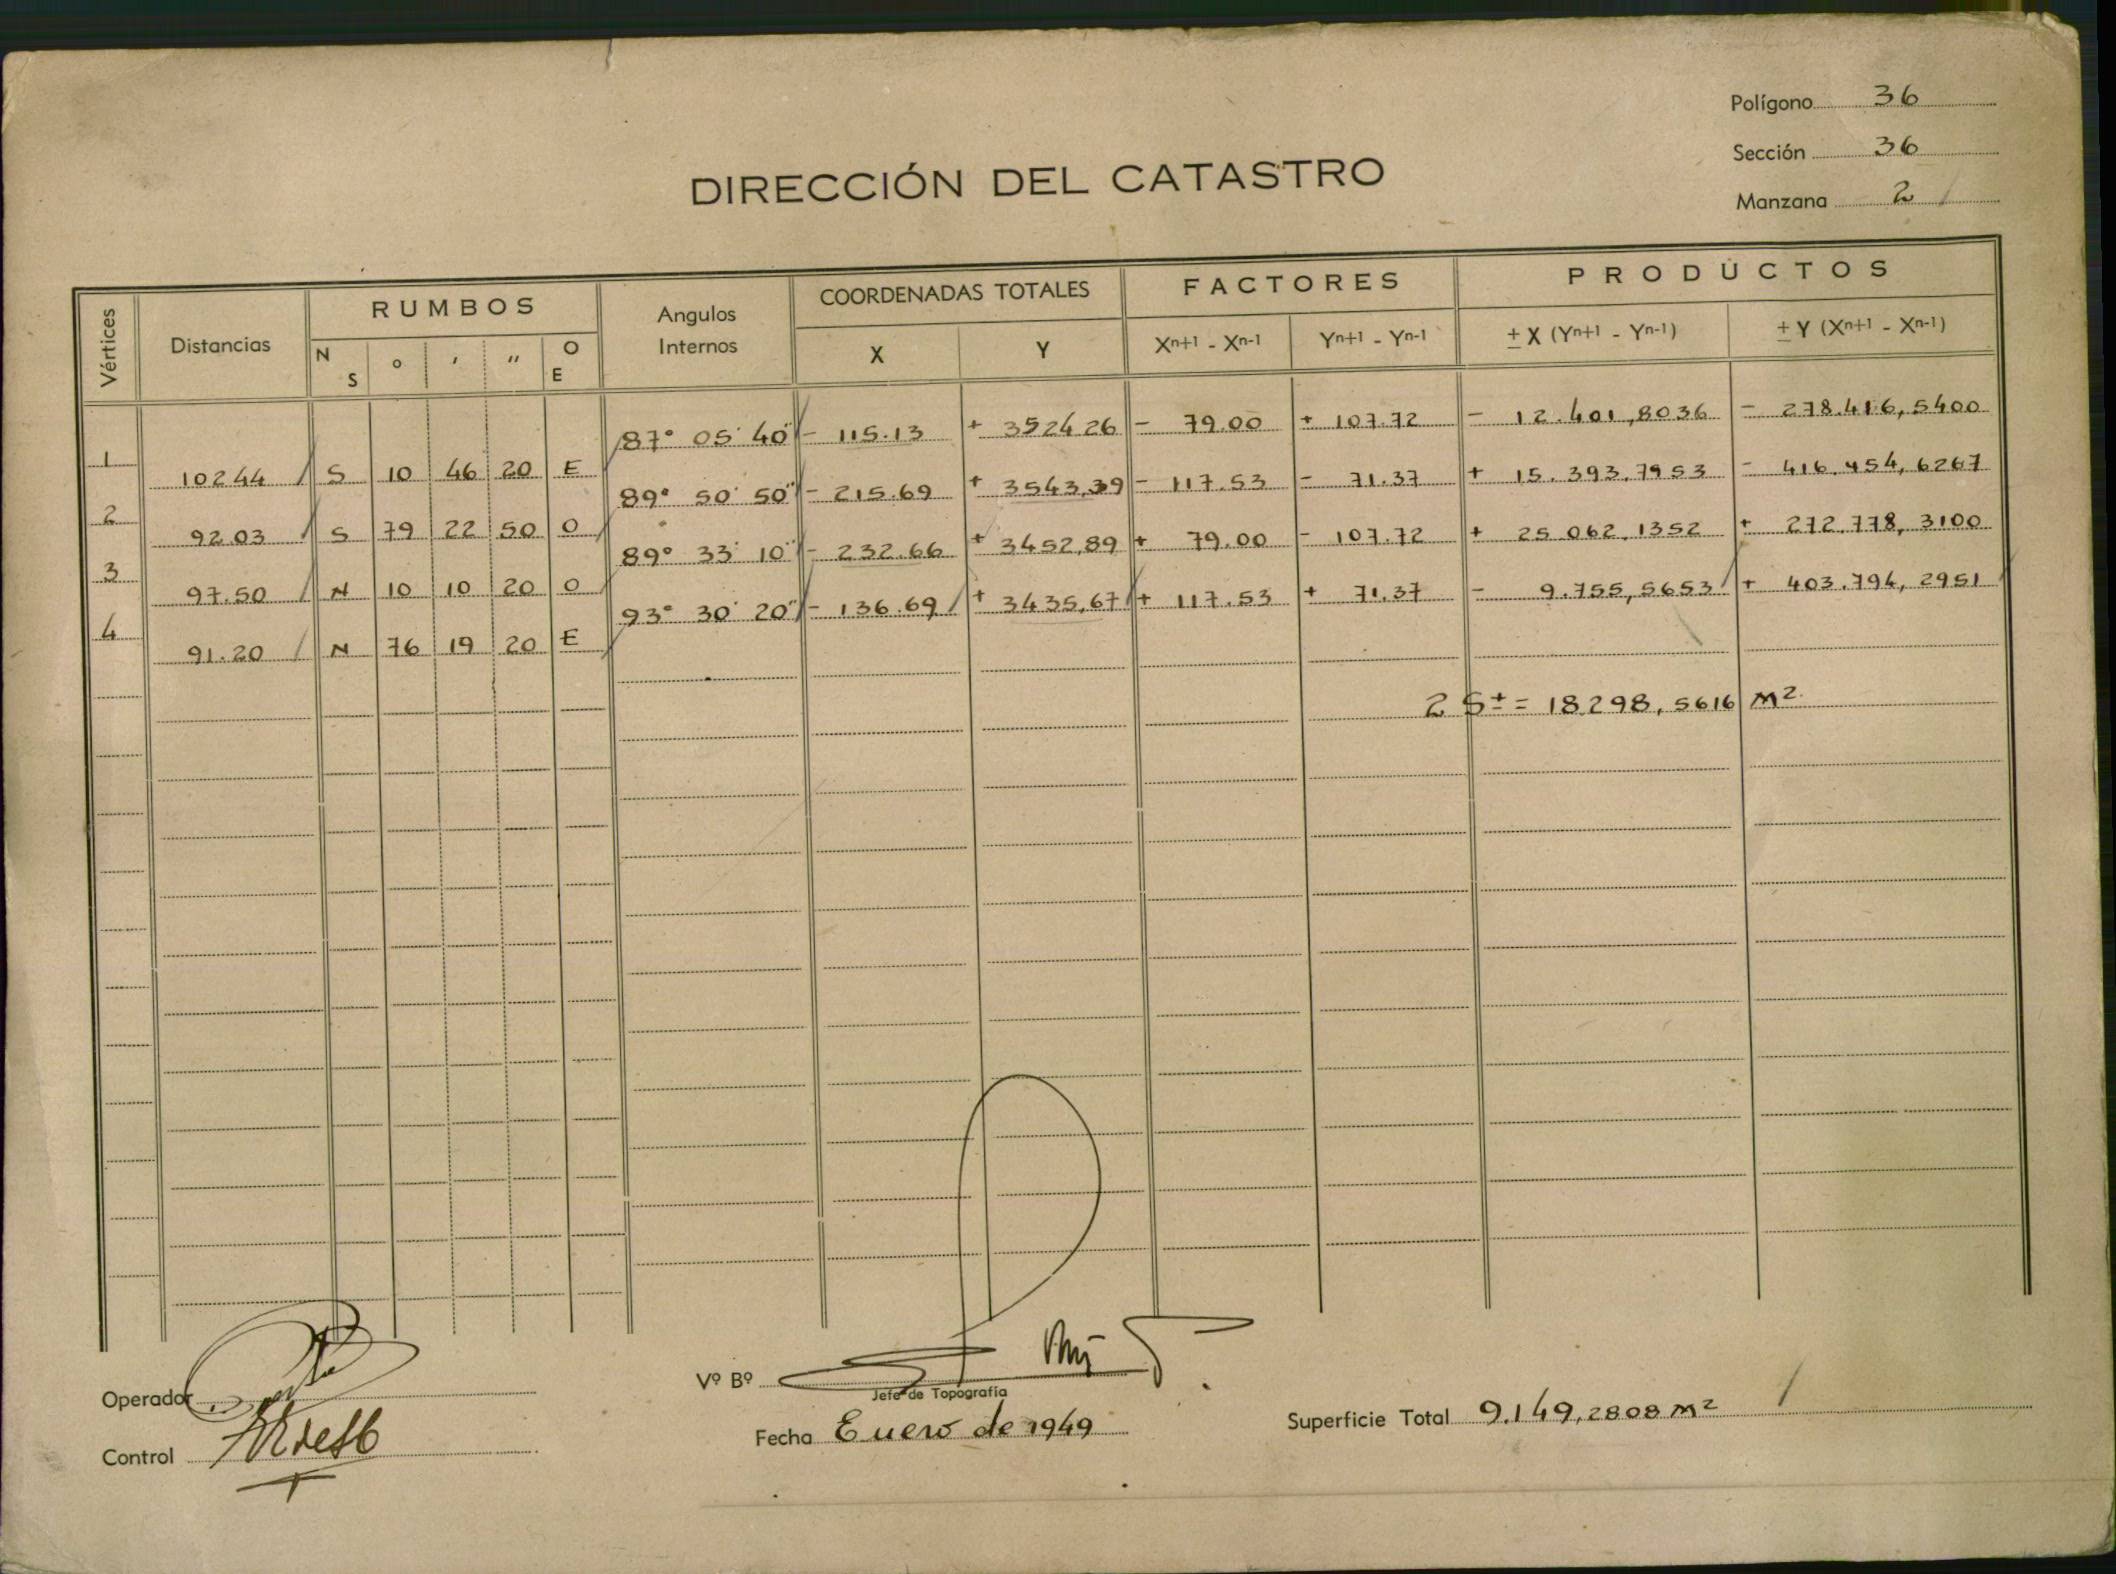 Polígono 36
Sección 36
Manzana 2
DIRECCIÓN DEL CATASTRO
Vértices Distancias RUMBOS Angulos Internos COORDENADAS TOTALES FACTORES PRODUCTOS
N S ° ′ ″ O E X Y Xn+1 - Xn-1 Yn+1 - Yn-1 ± X (Yn+1 - Yn-1) ± Y (Xn+1 - Xn-1)
87° 05' 40" - 115.13 + 3524 26 - 79.00 + 107.72 - 12.401,8036 - 278.416,5400
1 102 44 S 10 46 20 E
89° 50' 50" - 215.69 + 3543,39 - 117.53 - 71.37 + 15.393,7953 - 416.454,6267
2 92 03 S 79 22 50 O
89° 33' 10" - 232.66 + 3452,89 + 79.00 - 107.72 + 25 062,1352 + 272.778,3100
3 97.50 N 10 10 20 O
93° 30' 20" - 136.69 + 3435,67 + 117.53 + 71.37 - 9.755,5653 + 403.794,2951
4 91.20 N 76 19 20 E
2 S± = 18.298,5616 m²
Operador
Control
Vº Bº
Jefe de Topografía
Fecha Enero de 1949
Superficie Total 9.149,2808 m²